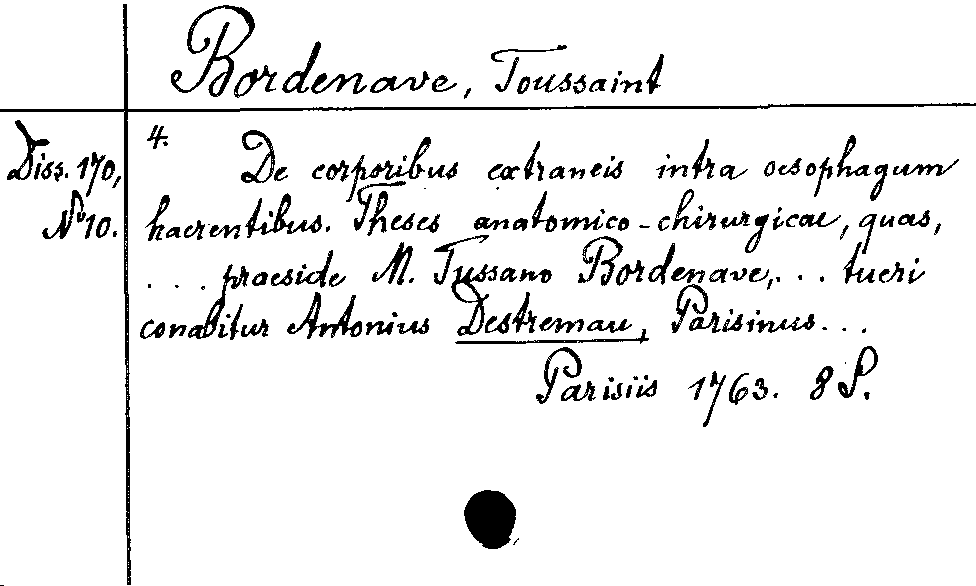 Bordenave, Toussaint
Diss. 170,
No 10.
4.
De corporibus extraneis intra oesophagum
haerentibus. Theses anatomico-chirurgicae, quas,
... praeside M. Tussano Bordenave,... tueri
conabitur Antonius Destremau, Parisinus...
Parisiis 1763. 8 S.